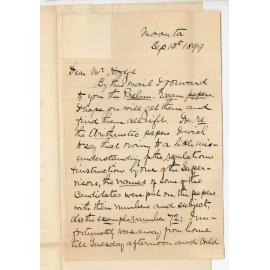 Moonta
Sep 13th 1899
Dear Mr Hodge
By this mail I forward
to you the Exam. papers.
I hope you will get them and
find them all safe. In re
the Arithmetic papers I wish
to say that owing to a little mis-
understanding of the regulations
& instructions by one of the Super-
visors, the names of some of the
Candidates were put on the papers
with their numbers and subject.
also the example number. I un-
fortunately was away from home
till Tuesday afternoon and